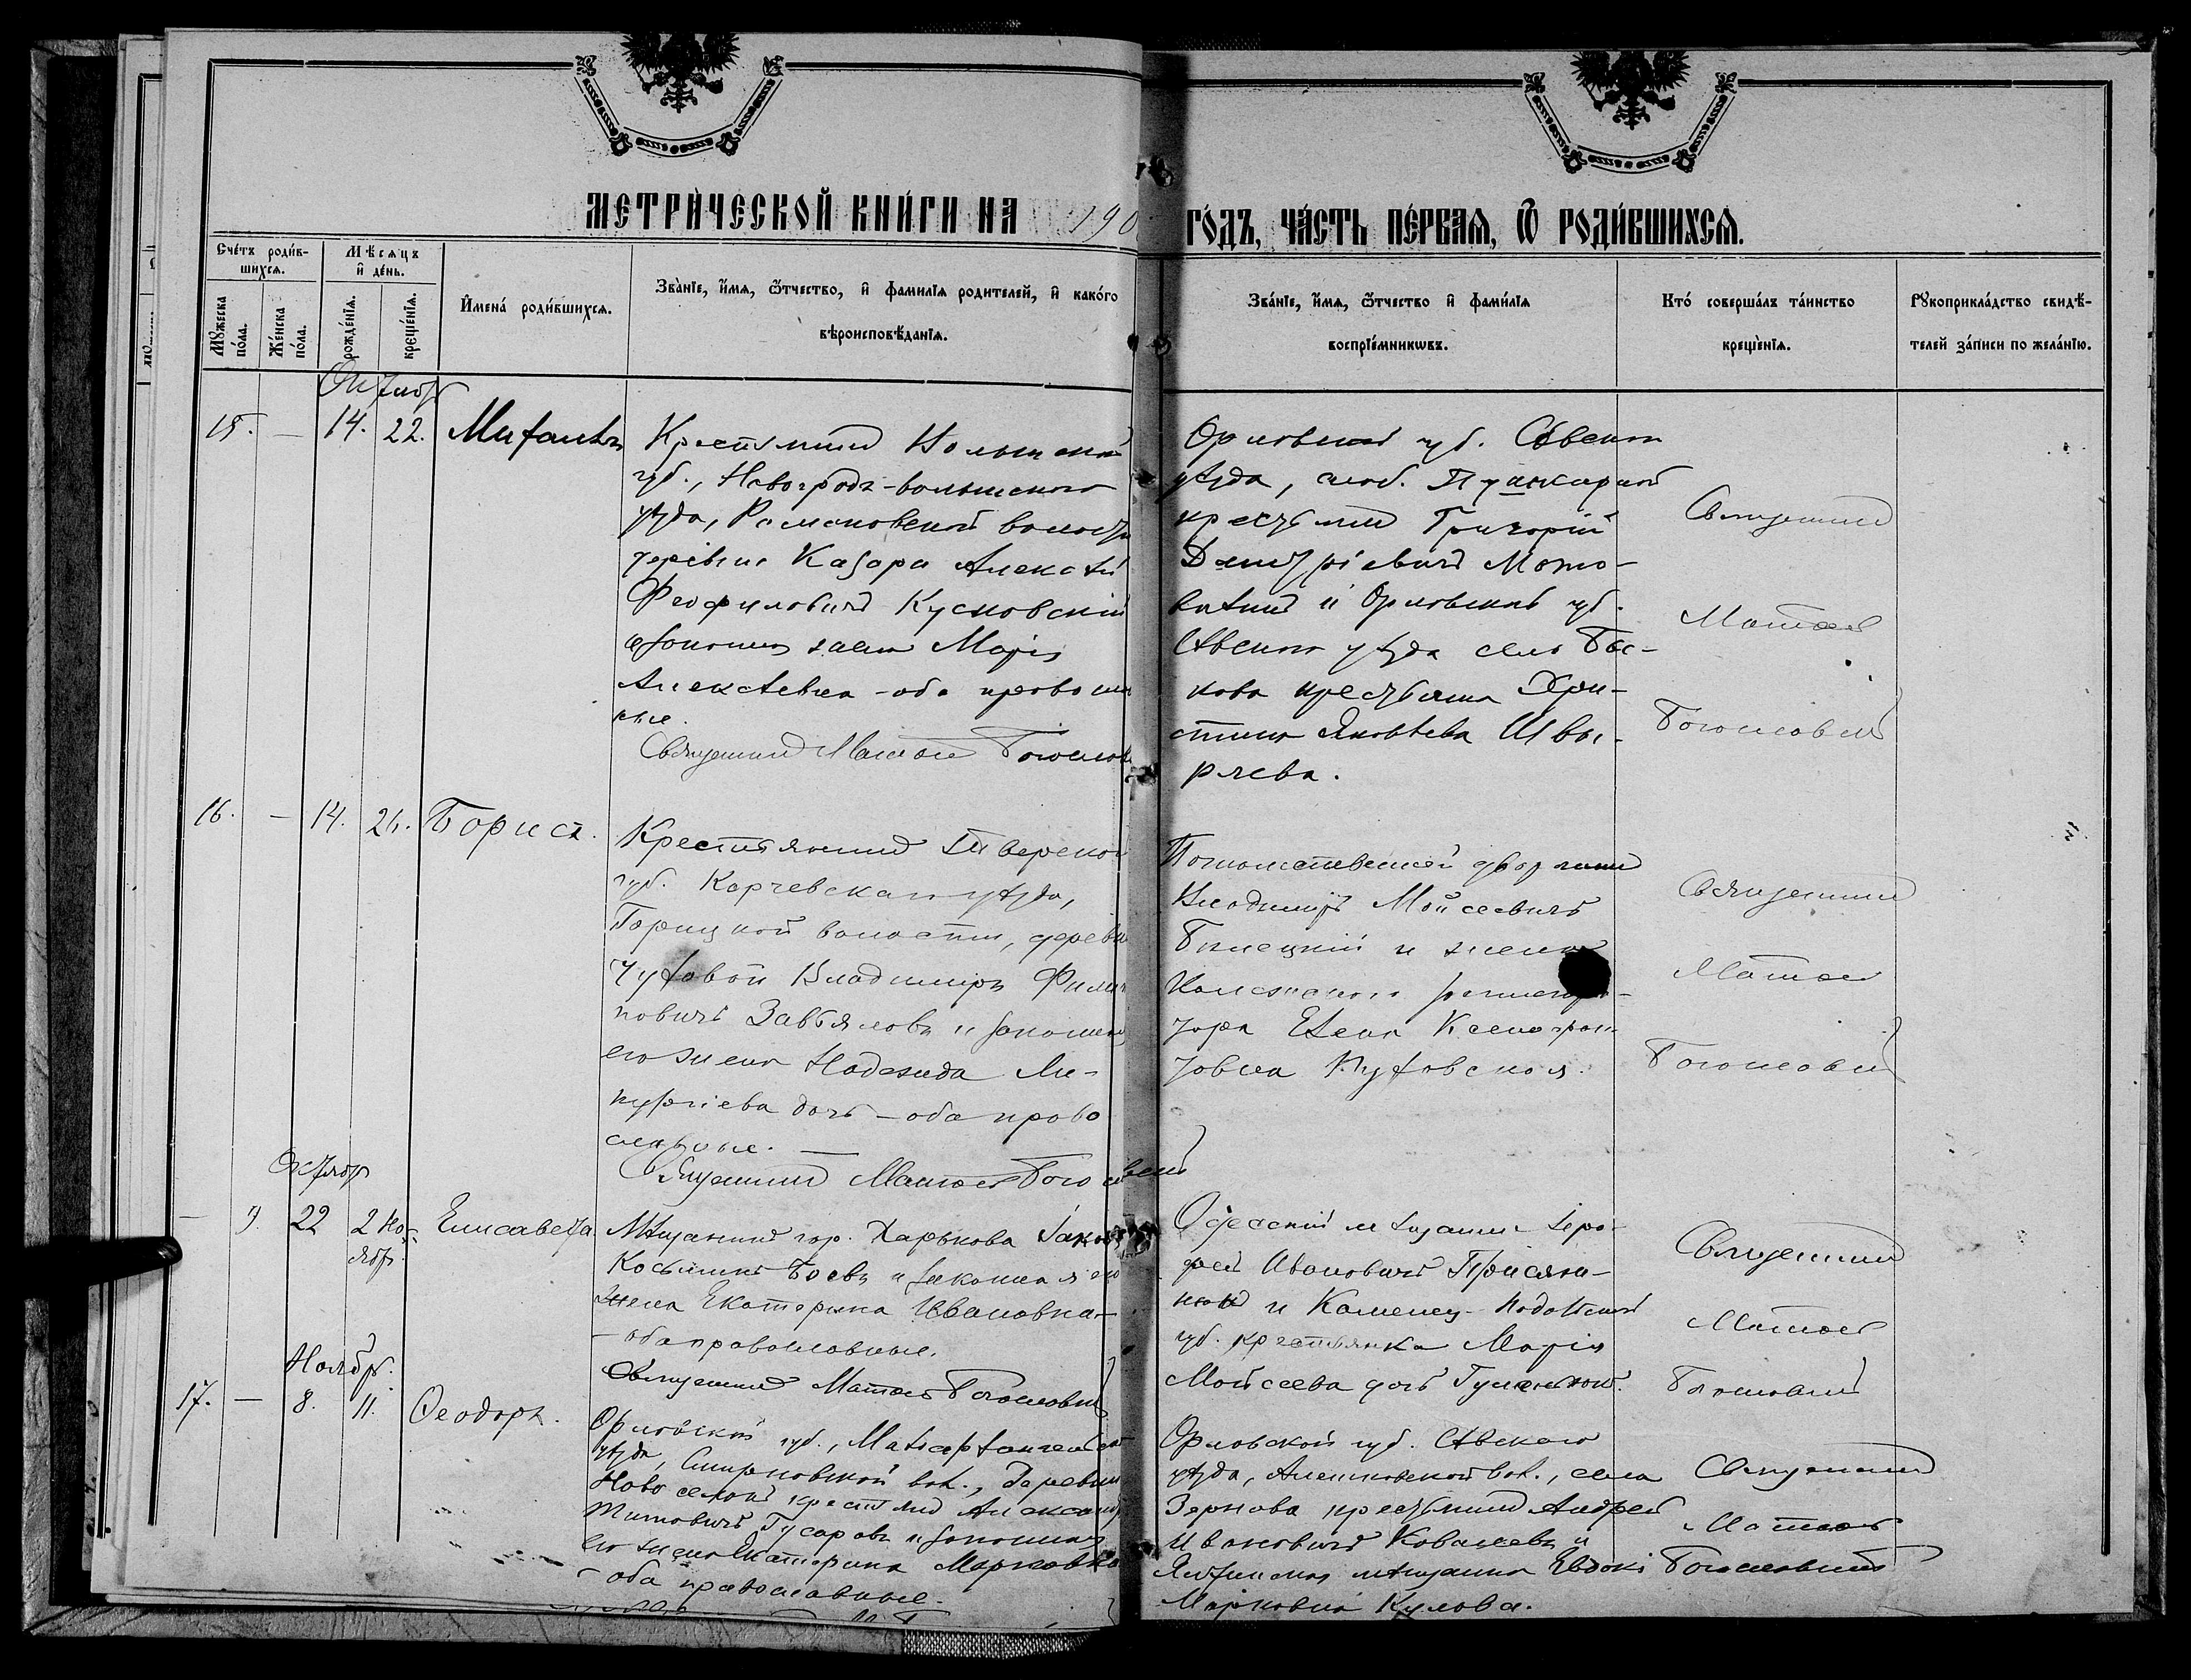 МЕТРИЧЕСКОЙ КНИГИ НА 190
ГОДЪ, ЧАСТЬ ПЕРВАЯ, Ѡ РОДИВШИХСЯ.
Счетъ родив-
шихся.
Мѣсяцъ
и день.
Мужеска
пола.
Женска
пола.
рожденія.
крещенія.
Имена родившихся.
Званіе, имя, ѡтчество, и фамилія родителей, и какого
вѣроисповѣданія.
Званіе, имя, ѡтчество и фамилія
воспріемниковъ.
Кто совершалъ таинство
крещенія.
Рукоприкладство свидѣ-
телей записи по желанію.
Октябр
15. — 14. 22. Михаилъ
Крестьянинъ Волынской
губ., Новоградъ-волынскаго
уѣзда, Романовской волости
деревни Хазара Алексѣй
Феофиловичъ Кусковскій
законная жена Марія
Алексѣевна - оба православ
ные.
Священникъ Матѳей Богословскій
Орловской губ. Сѣвскаго
уѣзда, слоб. Пушкарной
крестьянинъ Григорій
Димитріевичъ Мото-
и Орловской губ.
Сѣвскаго уѣзда села Бы-
кова крестьянка Хри-
стина Яковлева Швы-
ряева.
Священникъ
Матѳей
Богословскій
16. — 14. 26. Борисъ.
Крестьянинъ Тверской
губ. Корчевскаго уѣзда,
Горицкой волости, деревни
Владимиръ Филип
повичъ Завьяловъ и законная
его жена Надежда Ли-
кургіева дочь - оба право
славные. —
Священникъ Матѳей Богословскій
Потомственный дворянинъ
Владимиръ Мойсеевичъ
и жена
Коллежскаго регистра-
тора Елена Ксенофон-
товна
Священникъ
Матѳей
Богословскій
Октябр
— 9. 22 2 Но-
ябр. Елисавета
Мѣщанинъ гор. Харькова Іаковъ
Косьминъ Боевъ и законная его
жена Екатерина Ивановна -
- оба православные.
Священникъ Матѳей Богословскій
Одесскій мѣщанинъ Іеро-
фей Ивановичъ Присяж-
нюкъ и Каменец-Подольской
губ. крестьянка Марія
Мойсеева дочь
Священникъ
Матѳей
Богословскій
Ноябр.
17. — 8. 11. Ѳеодоръ.
Орловской губ., Малоархангельскаго
уѣзда, Смирновской вол., деревни
крестьянинъ Александръ
Титовичъ Гусаровъ и законная
его жена Екатерина Марковна
- оба православные.
Орловской губ. Сѣвскаго
уѣзда, Алешковской вол., села
Зернова крестьянинъ Андрей
Ивановичъ Ковалевъ и
Ялтинская мѣщанка Евдокі
Марковна Кулова.
Священникъ
Матѳей
Богословскій